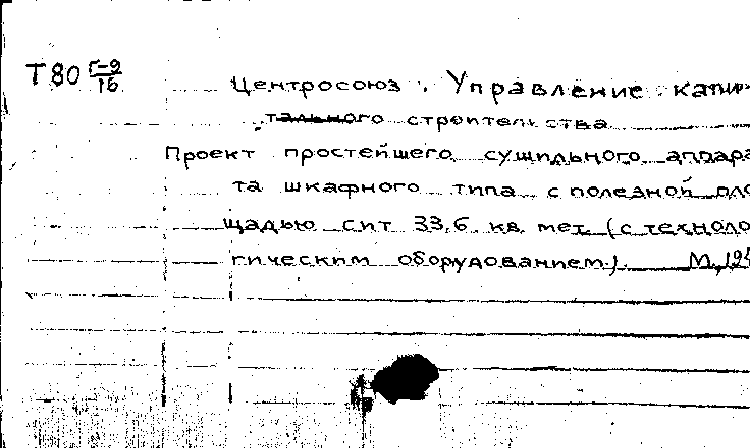 Т80 Г-9/16
Центросоюз. Управление капи-
тального строительства
Проект простейшего сушильного аппара-
та шкафного типа с полезной пло-
щадью сит 33,6 кв. мет. (с техноло-
гическим оборудованием). М., 194